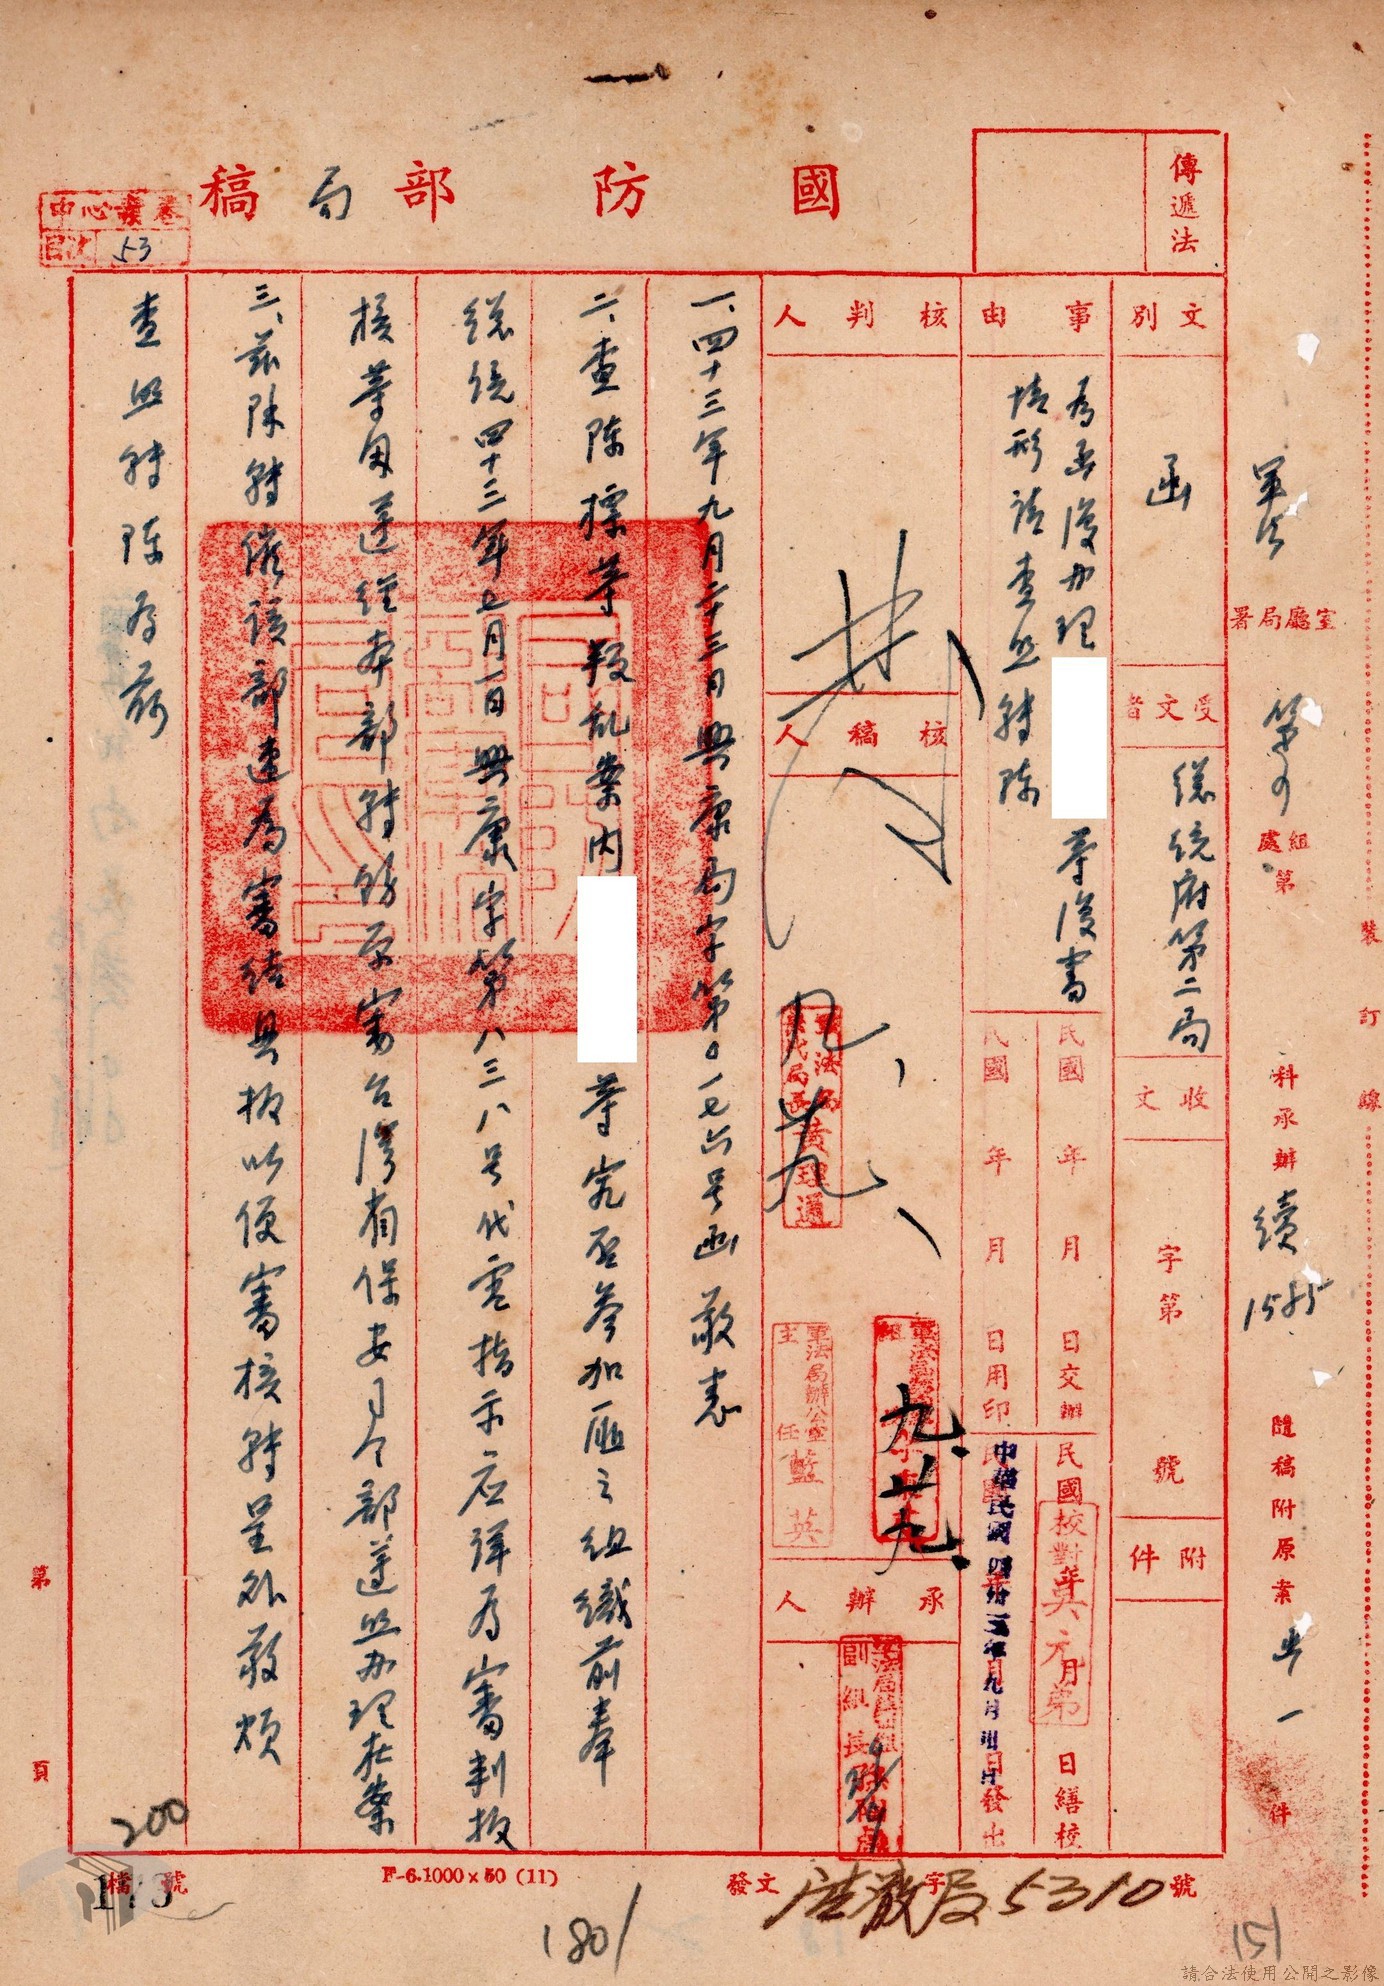 國防部局稿
傳遞法
中心檔卷
目次 53
文別
函
受文者
總統府第二局
收文
字第
號
附件
事由
為函復办理
等復審
情形請查照轉陳
民國 年 月 日交辦
民國 年 月 日用印
民國 年 月 日繕校
中華民國四十三年九月
日發出
校對 元弟
核判人
核稿人
承辦人
九、廿九、
九、廿九、
軍法局
黃理通
軍法局辦公室
主任 藍英
副組長
一、四十三年九月二十三日興康局字第0一七六号函敬悉
二、查陳標等叛亂案內
等究否參加匪之組織前奉
總統四十三年七月一日興康字第八三八号代電指示应詳為審判报
核等因遵經本部轉飭原審台灣省保安司令部遵照办理在案
三、兹除轉催該部速為審結具报以便審核轉呈外敬煩
查照轉陳為荷
軍法
室廳局署
組處
第
科承辦
續
1585
隨稿附原案
一
件
裝訂線
第
頁
200
檔號
F-6.1000×50 (11)
發文
字
5310
號
180
151
請合法使用公開之影像